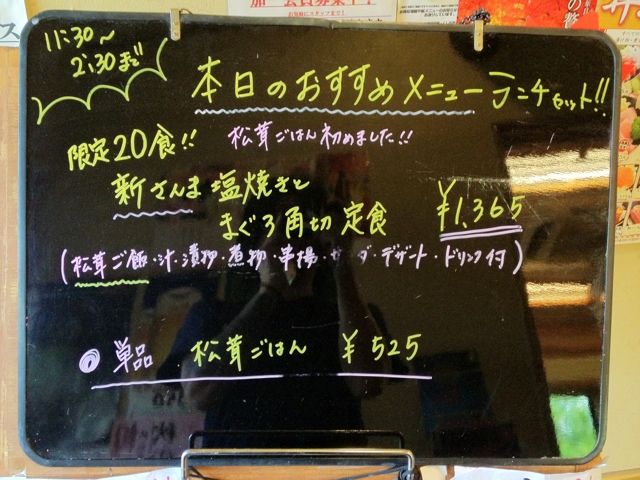 11:30~
2:30まで
本日のおすすめメニューランチセット!!
限定20食!! 松茸ごはん初めました!!
新さんま塩焼きと
まぐろ角切定食 ¥1,365
(松茸ご飯・汁・漬物・煮物・串揚・サラダ・デザート・ドリンク付)
単品 松茸ごはん ¥525